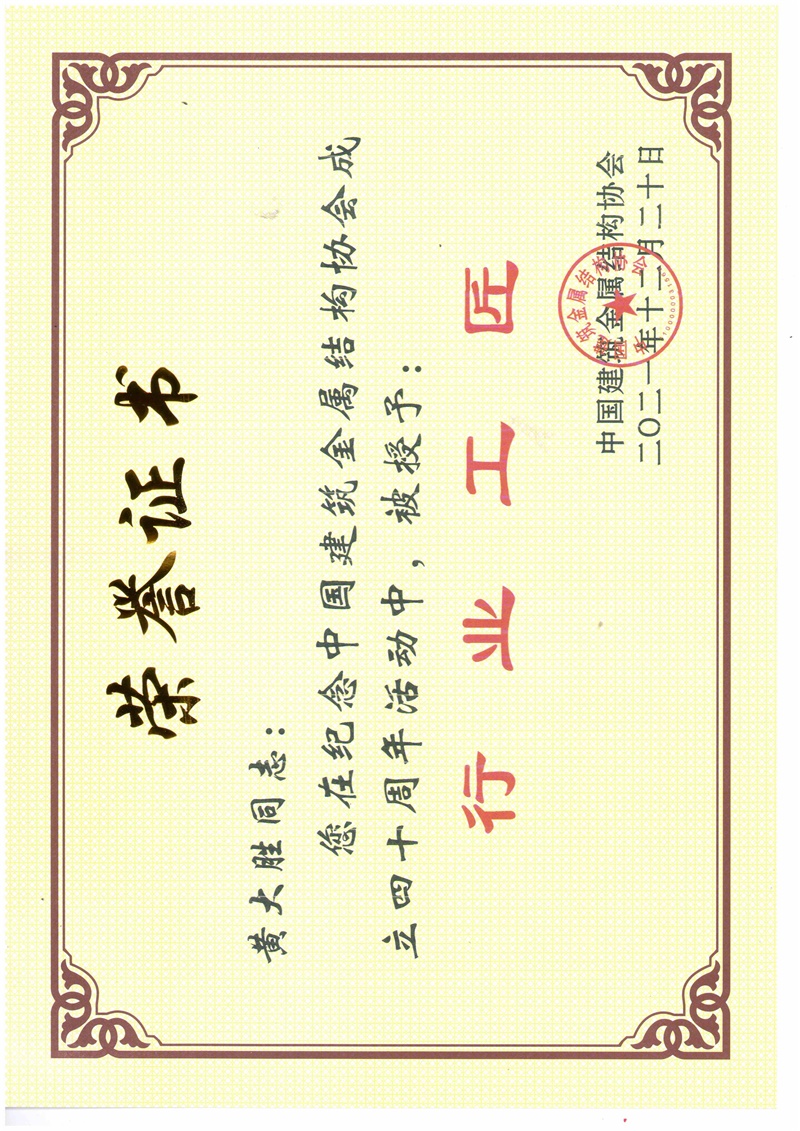 荣誉证书
黄大胜同志：
您在纪念中国建筑金属结构协会成
立四十周年活动中，被授予：
行业工匠
中国建筑金属结构协会
二〇二一年十二月二十日